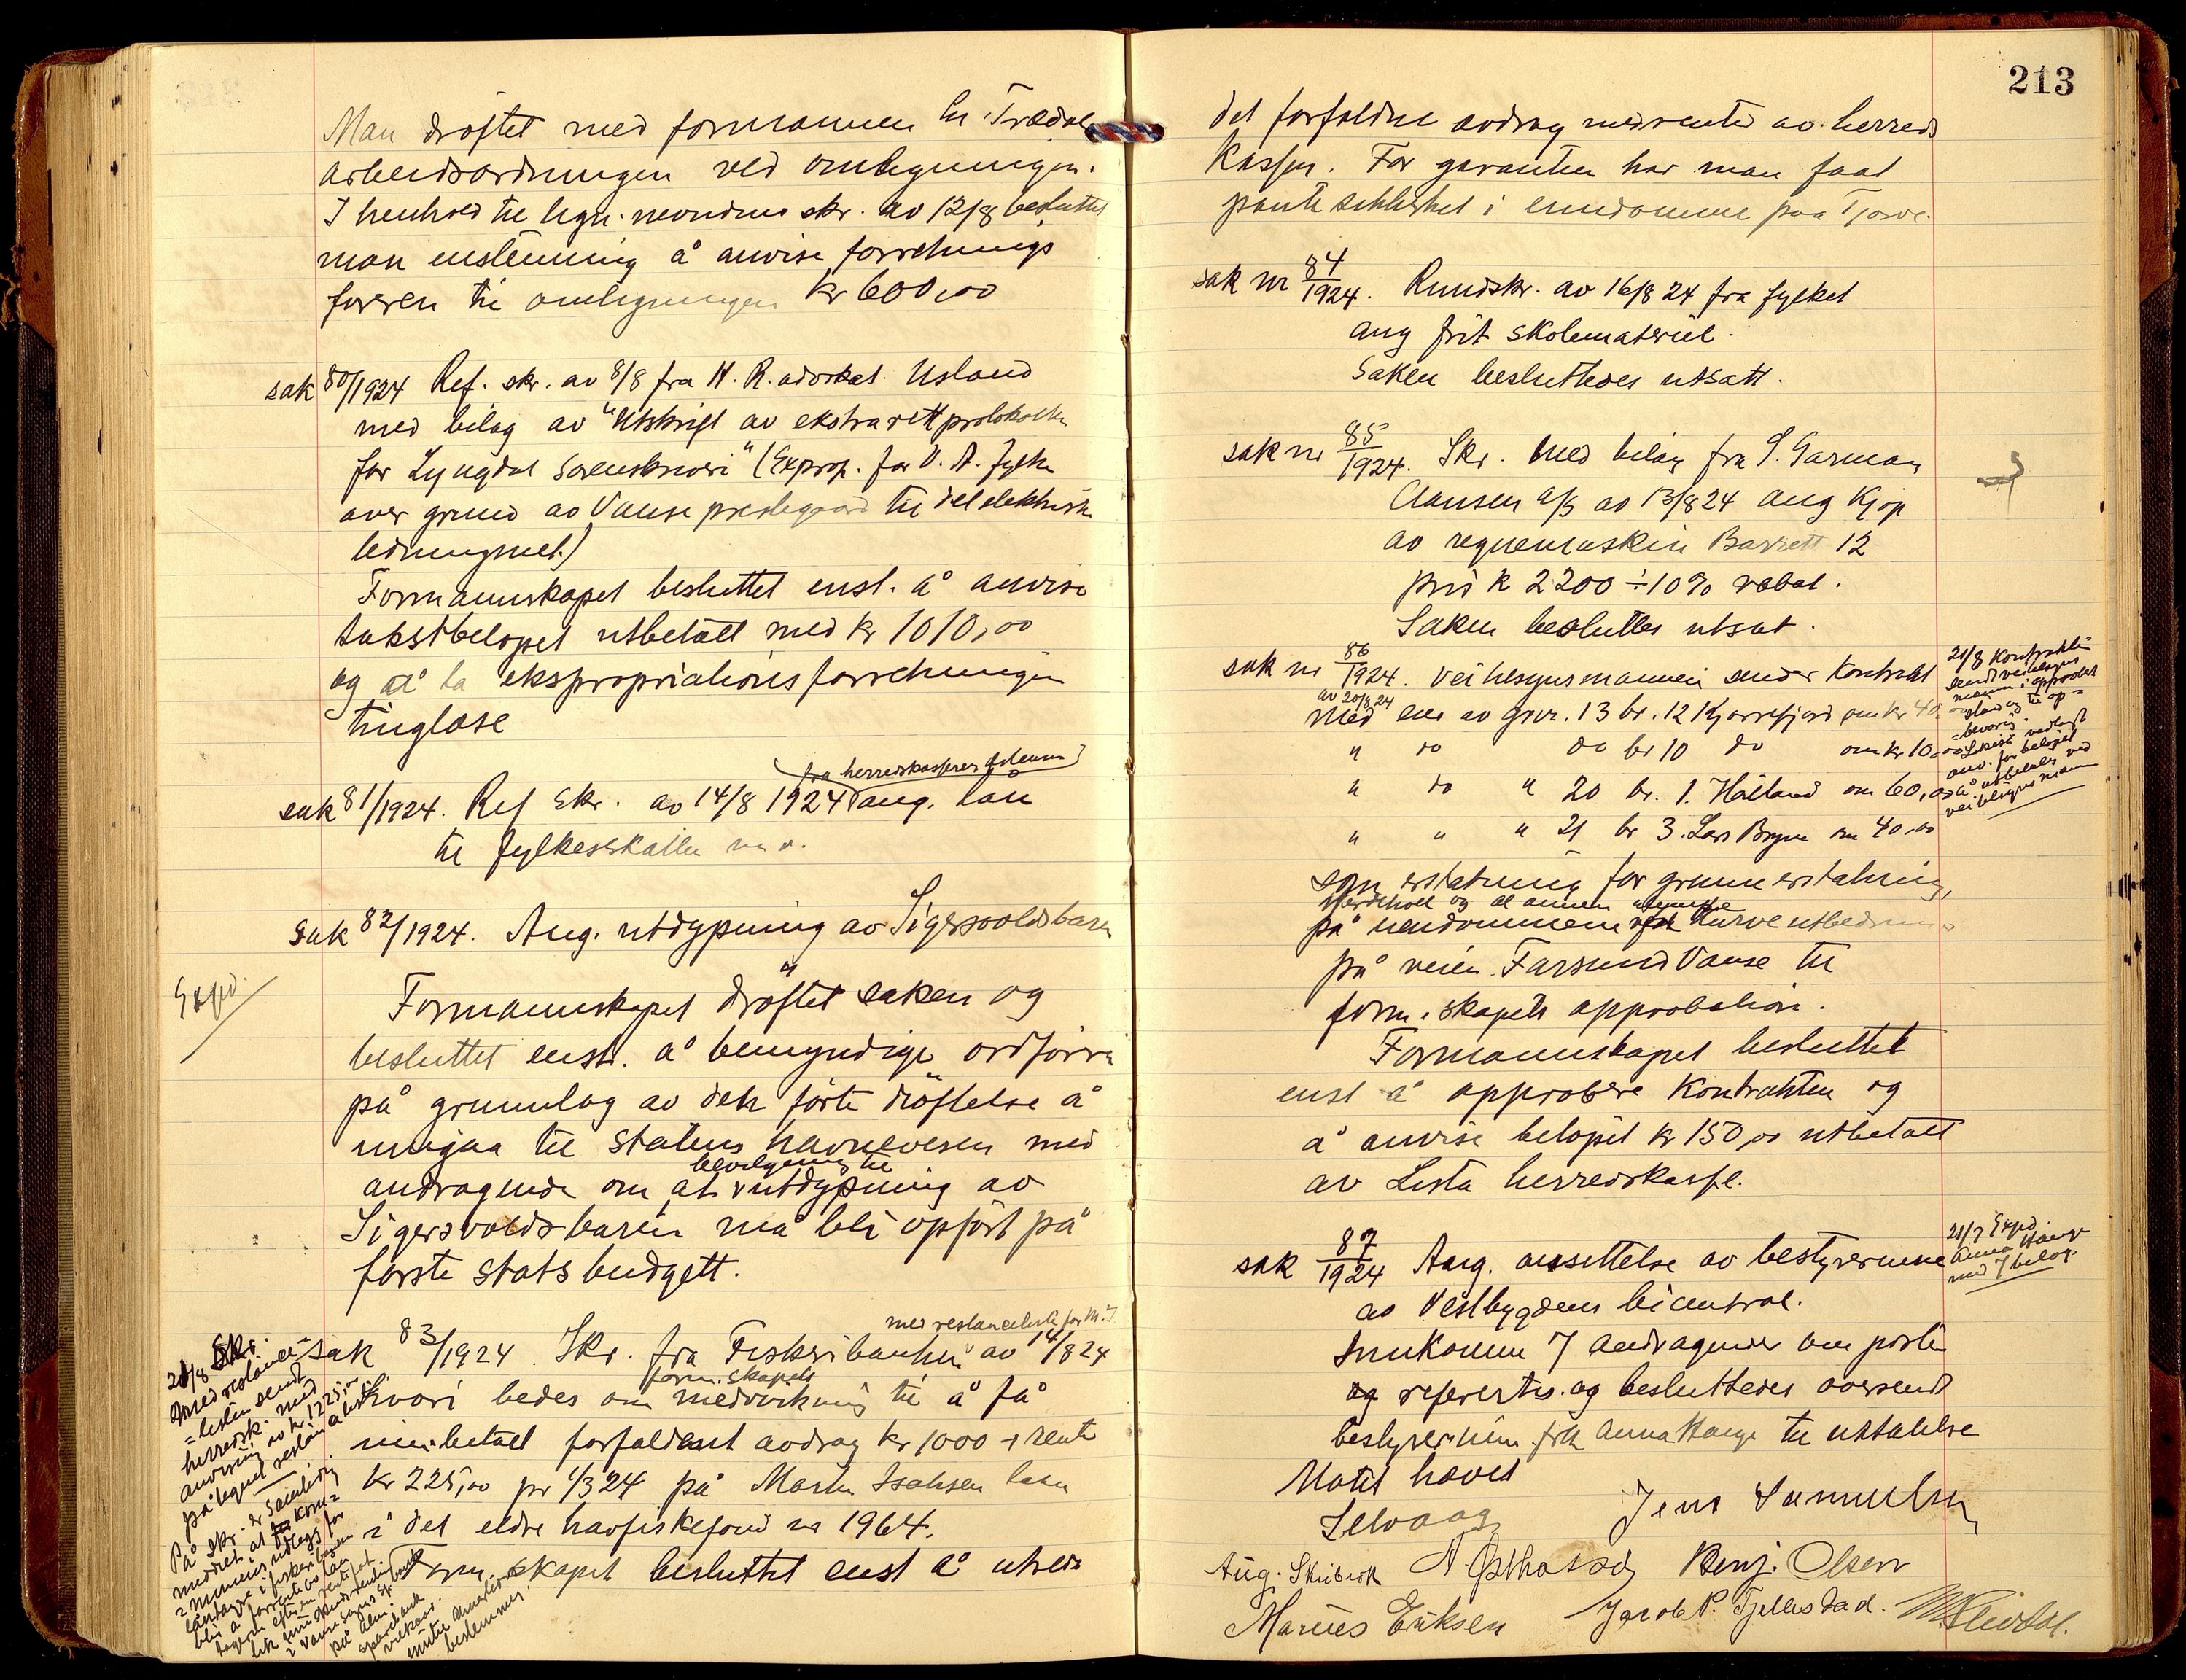 Man drøftet med formannen hr. Trædal
arbeidsordningen ved omligningen.
I henhold til lign. nevndens skr. av 12/8 besluttet
man enstemmig å anvise forretnings
føreren til omligningen kr 600,00
sak 80/1924 Ref. skr. av 8/8 fra H. R. advokat Usland
med bilag av "Utskrift av ekstrarettprotokollen
for Lyngdal Sorenskriveri" (Exprop. for V. A. fylke
over grund av Vanse prestegaard til del elektrisk
ledningsnet.)
Formannskapet besluttet enst. å anvise
takstbeløpet utbetalt med kr 1010,00
og å la ekspropriationsforretningen
tinglæse
fra herredskasserer
sak 81/1924. Ref skr. av 14/8 1924 ang. lån
til fylkesskatten m.v.
sak 82/1924. Ang. utdypning av Sigersvoldsbaren
Exped.
Formannskapet drøftet saken og
besluttet enst. å bemyndige ordføren
på grunnlag av den førte drøftelse å
inngaa til statens havnevesen med
bevilgning til
andragende om at utdypning av
Sigersvoldsbaren må bli opført på
første statsbudgett.
med restanceliste for M. I.
sak 83/1924. Skr. fra Fiskeribanken av 14/8 24
form. skapets
hvori bedes om medvirkning til å få
innbetalt forfaldent avdrag kr 1000 + rente
kr 225,00 pr 1/3 24 på Martin Isaksen laan
i det eldre havfiskefond nr 1964.
Form. skapet besluttet enst å utrede
21/8 Skr.
med restance-
=listen sendt
herredsk. med
anvisning av kr 1225,00
påtegnet restancelisten
På skr. er samtidig
meddelt at kom=
=munens utlegg for
låntager i fiskeribanken
blir å forrente av lån
tageren efter en rentefot
lik
i Vanse sogns sp. bank
på alm.
sparebank
vilkaar.
inntil annerledes
bestemmes.
213
det forfaldne avdrag med rente av herreds
kassen. For garantien har man faat
pantesikkerhet i eiendommene paa Tjørve.
sak nr 84/1924. Rundskr. av 16/8 24 fra fylket
ang frit skolemateriel.
Saken besluttedes utsatt.
sak nr 85/1924. Skr. med bilag fra S. Garman
Clausen a/s av 13/8 24 ang kjøp
av regnemaskin Barrett 12
pris k 2200 ÷ 10% rabat.
Saken besluttes utsat.
sak nr 86/1924. Veitilsynsmannen sender kontrakt
av 20/8 24
med eier av gnr. 13 br. 12 Kjørrefjord om kr 40,00
" do do br 10 do om kr 10,00
" do " 20 br. 1. Håland om 60,00
" " " 21 br 3. Lars Bryne om 40,00
som erstatning for grunnerstatning,
gjerdehold og al annen ulempe
på eiendommene ved kurveutbedring
på veien Farsund Vanse til
form. skapets approbation.
Formannskapet besluttet
enst å approbere kontrakten og
å anvise beløpet kr 150,00 utbetalt
av Lista herredskasse.
21/8 Kontrakten
sendt veitilsyns
mann i approbert
stand til op=
=bevaring.
Likeså vedlagt
anv. for beløpet
å utbetales ved
veitilsynsmann
sak 87/1924 Ang. ansettelse av bestyrerinne
av Vestbygdens bicentral.
Innkommne 7 andragender om posten
og refertes og besluttedes oversendt
bestyrerinnen frk Anna Hauge til uttalelse
21/7 Exped.
Anna Hauge
med 7 bilag.
Møtet hævet
Selvaag
Jens Samuelsen
Aug. Skibrek A Østhassel Benj. Olsen
Marius Eriksen Jacob P. Tjellestad.